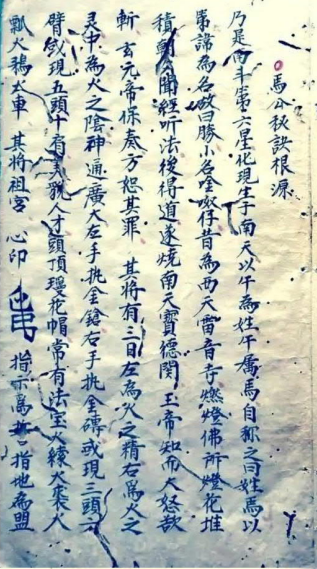 馬公秘訣根源
乃是南斗第六星化現生于南天以午為姓午屬馬自称之曰姓馬以
第諦為名故曰勝小名金𠎀仔昔為西天雷音寺燃燈佛所燈花堆
積朝聞經听法後得道遂燒南天寶德関玉帝知而大怒欲
斬玄元帝保奏方恕其罪 其將有三目左為火之精右爲火之
灵中為火之陰神通廣大左手执金鎗右手执金磚或現三頭六
臂或現五頭十有 人才頭頂瓊花帽常有法宝火練火袋火
瓢火鵶火車 其將祖宮 心印 指示為 指地為盟